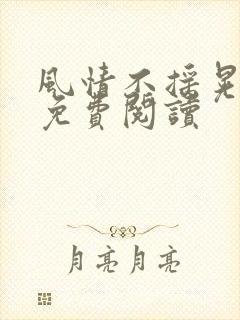 風情不摇晃
免費閱讀
月亮月亮